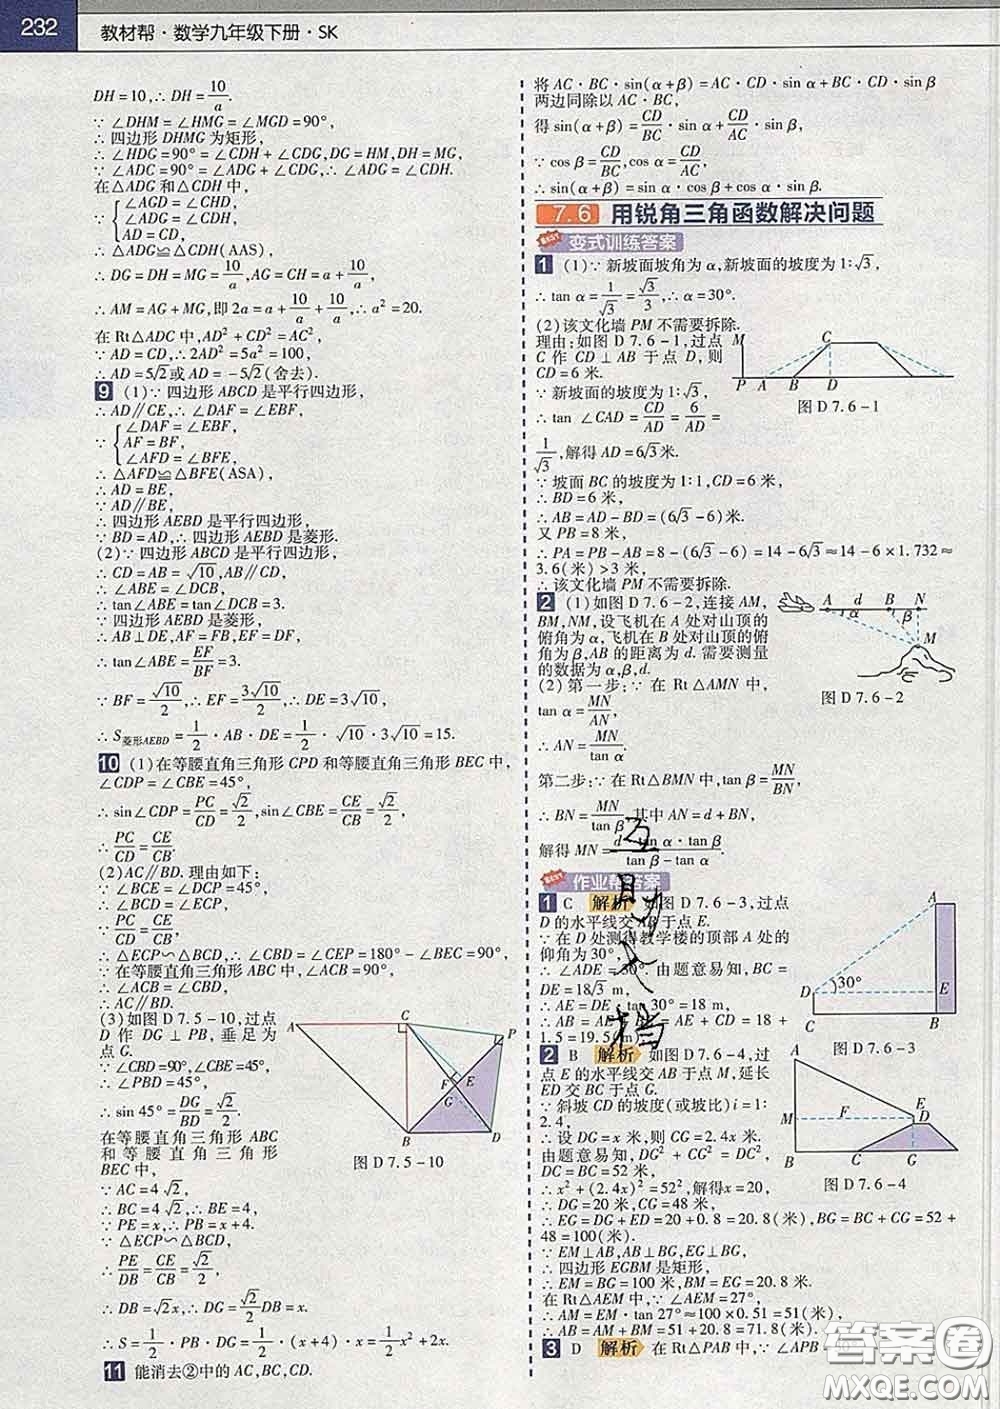 232 教材帮·数学九年级下册·SK
DH=10,∴DH=10/a.
∵∠DHM=∠HMG=∠MGD=90°,
∴四边形 DHMG 为矩形,
∴∠HDG=90°=∠CDH+∠CDG,DG=HM,DH=MG,
∵∠ADC=90°=∠ADG+∠CDG,∴∠ADG=∠CDH.
在△ADG 和△CDH 中,
∠AGD=∠CHD,
∵ ∠ADG=∠CDH,
AD=CD,
∴△ADG≌△CDH(AAS),
∴DG=DH=MG=10/a,AG=CH=a+10/a,
∴AM=AG+MG,即 2a=a+10/a+10/a,∴a²=20.
在 Rt△ADC 中,AD²+CD²=AC²,
∵AD=CD,∴2AD²=5a²=100,
∴AD=5√2或 AD=-5√2(舍去).
9 (1)∵四边形 ABCD 是平行四边形,
∴AD∥CE,∴∠DAF=∠EBF,
∠DAF=∠EBF,
∵ AF=BF,
∠AFD=∠EFB,
∴△AFD≌△BFE(ASA),
∴AD=BE,
∵AD∥BE,
∴四边形 AEBD 是平行四边形,
∵BD=AD,∴四边形 AEBD 是菱形.
(2)∵四边形 ABCD 是平行四边形,
∴CD=AB=√10,AB∥CD,
∴∠ABE=∠DCB,
∴tan∠ABE=tan∠DCB=3.
∵四边形 AEBD 是菱形,
∴AB⊥DE,AF=FB,EF=DF,
∴tan∠ABE=EF/BF=3.
∵BF=√10/2,∴EF=3√10/2,∴DE=3√10,
∴S菱形AEBD=1/2·AB·DE=1/2·√10·3√10=15.
10 (1)在等腰直角三角形 CPD 和等腰直角三角形 BEC 中,
∠CDP=∠CBE=45°,
∴sin∠CDP=PC/CD=√2/2,sin∠CBE=CE/CB=√2/2,
∴PC/CD=CE/CB.
(2)AC∥BD. 理由如下:
∵∠BCE=∠DCP=45°,
∴∠BCD=∠ECP,
∵PC/CD=CE/CB,
∴△ECP∽△BCD,∴∠CBD=∠CEP=180°-∠BEC=90°,
∵在等腰直角三角形 ABC 中,∠ACB=90°,
∴∠ACB=∠CBD,
∴AC∥BD.
(3)如图 D7.5-10,过点
D 作 DG⊥PB,垂足为
点 G.
∵∠CBD=90°,∠CBE=45°,
∴∠PBD=45°,
∴sin 45°=DG/BD=√2/2.
在等腰直角三角形 ABC
和等腰直角三角形
BEC 中,
∵AC=4√2,
∴BC=4√2,∴BE=4,
∵PE=x,∴PB=x+4.
∵△ECP∽△BCD,
∴PE/DB=CE/CB=√2/2,
∴DB=√2x,∴DG=√2/2DB=x.
∴S=1/2·PB·DG=1/2·(x+4)·x=1/2x²+2x.
11 能消去②中的 AC,BC,CD.
A C P F E G B D
图 D7.5-10
将 AC·BC·sin(α+β)=AC·CD·sin α+BC·CD·sin β
两边同除以 AC·BC,
得 sin(α+β)=CD/BC·sin α+CD/AC·sin β,
∵cos β=CD/BC,cos α=CD/AC,
∴sin(α+β)=sin α·cos β+cos α·sin β.
7.6 用锐角三角函数解决问题
变式训练答案
1 (1)∵新坡面坡角为 α,新坡面的坡度为 1∶√3,
∴tan α=1/√3=√3/3,∴α=30°.
(2)该文化墙 PM 不需要拆除.
理由:如图 D7.6-1,过点
C 作 CD⊥AB 于点 D,则
CD=6 米.
∵新坡面的坡度为 1∶√3,
∴tan ∠CAD=CD/AD=6/AD=
1/√3,解得 AD=6√3米.
∵坡面 BC 的坡度为 1∶1,CD=6 米,
∴BD=6 米,
∴AB=AD-BD=(6√3-6)米.
又 PB=8 米,
∴PA=PB-AB=8-(6√3-6)=14-6√3≈14-6×1.732≈
3.6(米)>3 米,
∴该文化墙 PM 不需要拆除.
M C P A B D
图 D7.6-1
2 (1)如图 D7.6-2,连接 AM,
BM,NM,设飞机在 A 处对山顶的
俯角为 α,飞机在 B 处对山顶的俯
角为 β,AB 的距离为 d. 需要测量
的数据为 α,β,d.
(2)第一步:∵在 Rt△AMN 中,
tan α=MN/AN,
∴AN=MN/tan α.
第二步:∵在 Rt△BMN 中,tan β=MN/BN,
∴BN=MN/tan β,其中 AN=d+BN,
解得 MN=d·tan α·tan β/tan β-tan α.
A d B N α β M
图 D7.6-2
作业帮答案
1 C 解析 如图 D7.6-3,过点
D 的水平线交 AB 于点 E.
∵在 D 处测得教学楼的顶部 A 处的
仰角为 30°,
∴∠ADE=30°. 由题意易知,BC=
DE=18√3 m,
∴AE=DE·tan 30°=18 m,
∴AB=AE+BE=AE+CD=18+
1.5=19.5(m).
A D 30° E C B
图 D7.6-3
2 B 解析 如图 D7.6-4,过
点 E 的水平线交 AB 于点 M,延长
ED 交 BC 于点 G.
∵斜坡 CD 的坡度(或坡比)i=1∶
2.4,
∴设 DG=x米,则 CG=2.4x 米.
由题意易知,DG²+CG²=DC²,
DC=BC=52 米,
∴x²+(2.4x)²=52²,解得x=20,
∴DG=20 米,CG=48 米,
∴EG=DG+ED=20+0.8=20.8(米),BG=BC+CG=52+
48=100(米).
∵EM⊥AB,AB⊥BG,EG⊥BG,
∴四边形 EGBM 是矩形,
∴EM=BG=100 米,BM=EG=20.8 米.
在 Rt△AEM 中,∵∠AEM=27°,
∴AM=EM·tan 27°≈100×0.51=51(米),
∴AB=AM+BM=51+20.8=71.8(米).
A M F E D B C G
图 D7.6-4
3 D 解析 ∵在 Rt△PAB 中,∵∠APB
答案圈
MXQE.COM